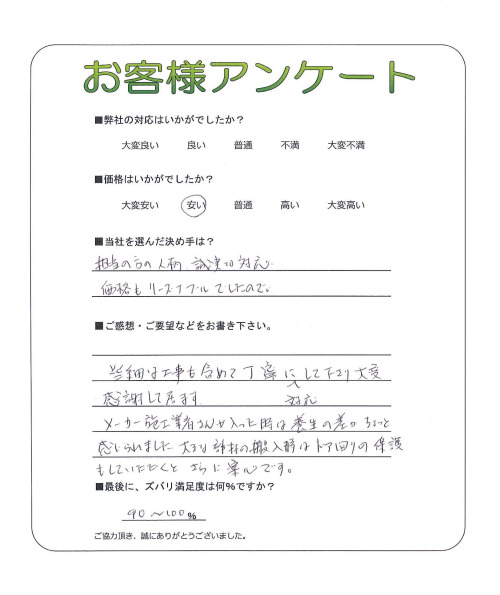 お客様アンケート
■弊社の対応はいかがでしたか？
大変良い 良い 普通 不満 大変不満
■価格はいかがでしたか？
大変安い 安い 普通 高い 大変高い
■当社を選んだ決め手は？
担当の方の人柄 誠実な対応
価格もリーズナブルでしたので。
■ご感想・ご要望などをお書き下さい。
工事も含めて丁寧に対応して下さり大変
感謝して居ます
メーカー施工業者さんが入った時は養生の差がちょっと
感じられました 大きな部材の搬入時はドア回りの保護
もしていただくとさらに安心です。
■最後に、ズバリ満足度は何％ですか？
90～100％
ご協力頂き、誠にありがとうございました。